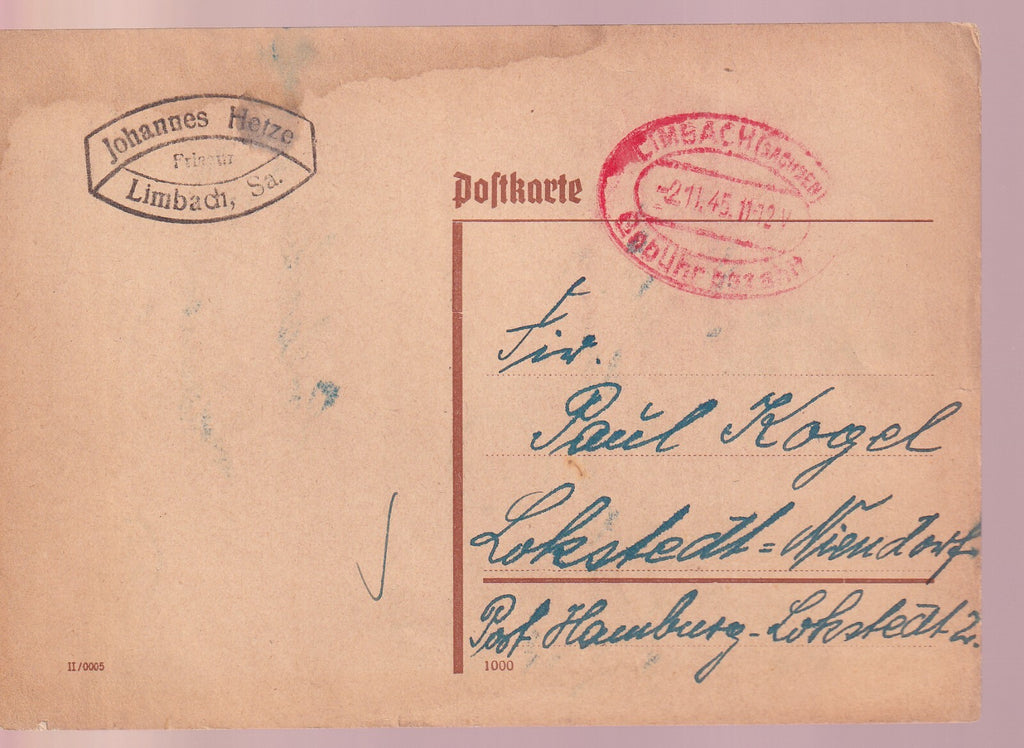 Johannes Hetze
Friseur
Limbach, Sa.
Postkarte
LIMBACH (SACHSEN)
-2.11.45. 11-12 V
Gebühr bezahlt
Fir.
Paul Kogel
Lokstedt=Niendorf
Post Hamburg-Lokstedt 2.
II/0005
1000